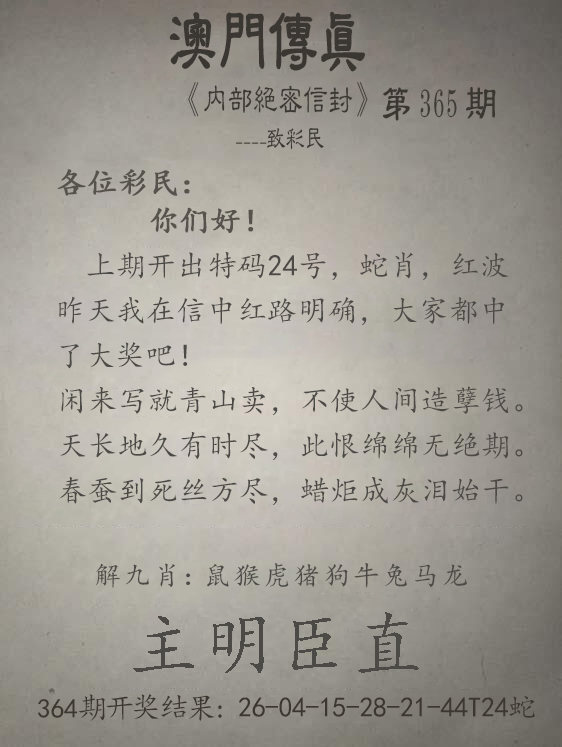 澳門傳眞
《内部絕密信封》第365期
----致彩民
各位彩民：
你们好！
上期开出特码24号，蛇肖，红波
昨天我在信中红路明确，大家都中
了大奖吧！
闲来写就青山卖，不使人间造孽钱。
天长地久有时尽，此恨绵绵无绝期。
春蚕到死丝方尽，蜡炬成灰泪始干。
解九肖：鼠猴虎猪狗牛兔马龙
主明臣直
364期开奖结果：26-04-15-28-21-44T24蛇